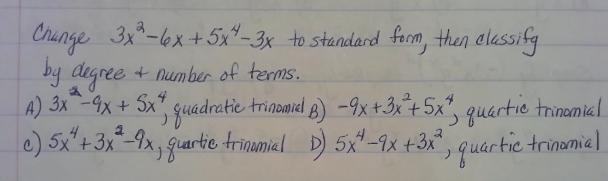 Change 3x²-6x+5x⁴-3x to standard form, then classify
by degree + number of terms.
A) 3x²-9x+5x⁴, quadratic trinomial B) -9x+3x²+5x⁴, quartic trinomial
c) 5x⁴+3x²-9x, quartic trinomial D) 5x⁴-9x+3x², quartic trinomial